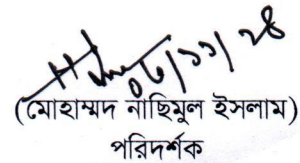 ০৬/১১/২৪
(মোহাম্মদ নাছিমুল ইসলাম)
পরিদর্শক